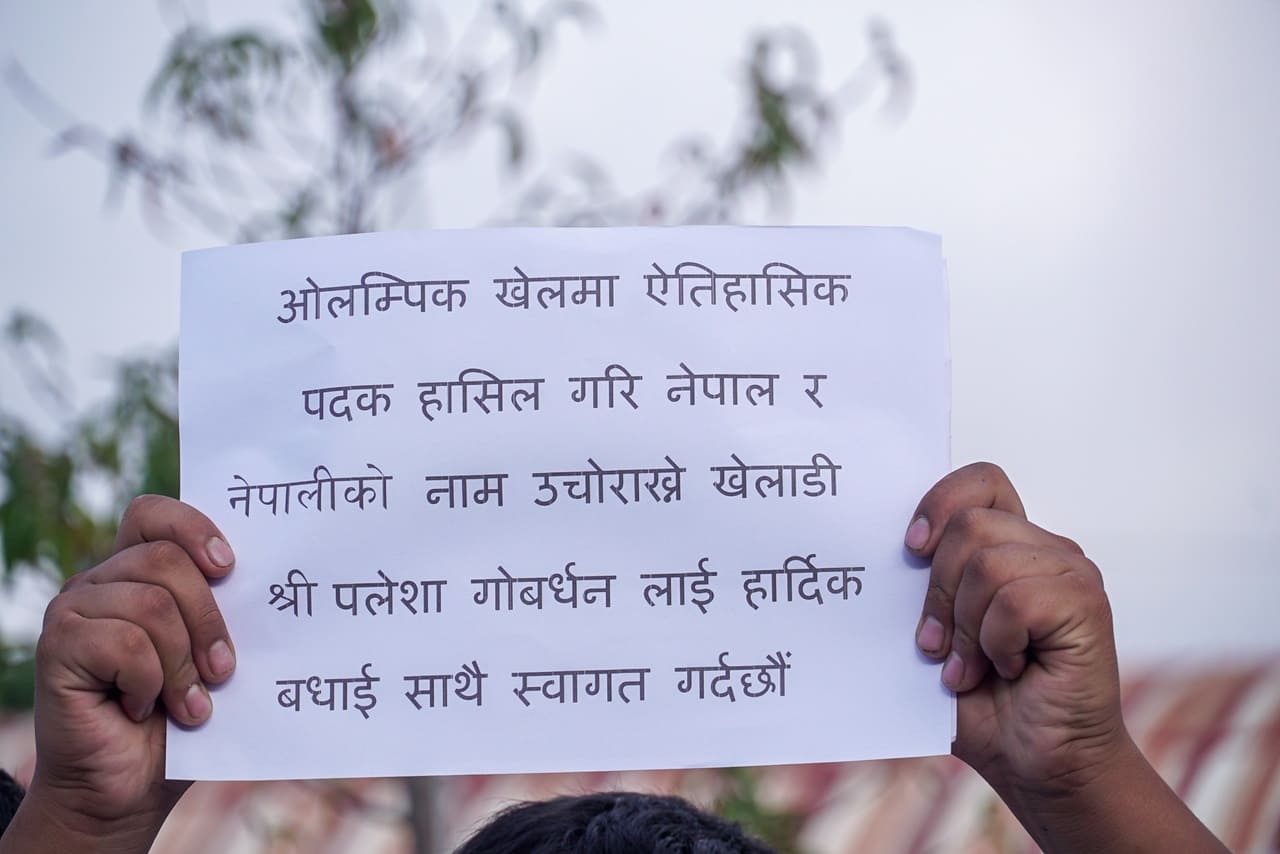 ओलम्पिक खेलमा ऐतिहासिक
पदक हासिल गरि नेपाल र
नेपालीको नाम उचोराख्ने खेलाडी
श्री पलेशा गोबर्धन लाई हार्दिक
बधाई साथै स्वागत गर्दछौं